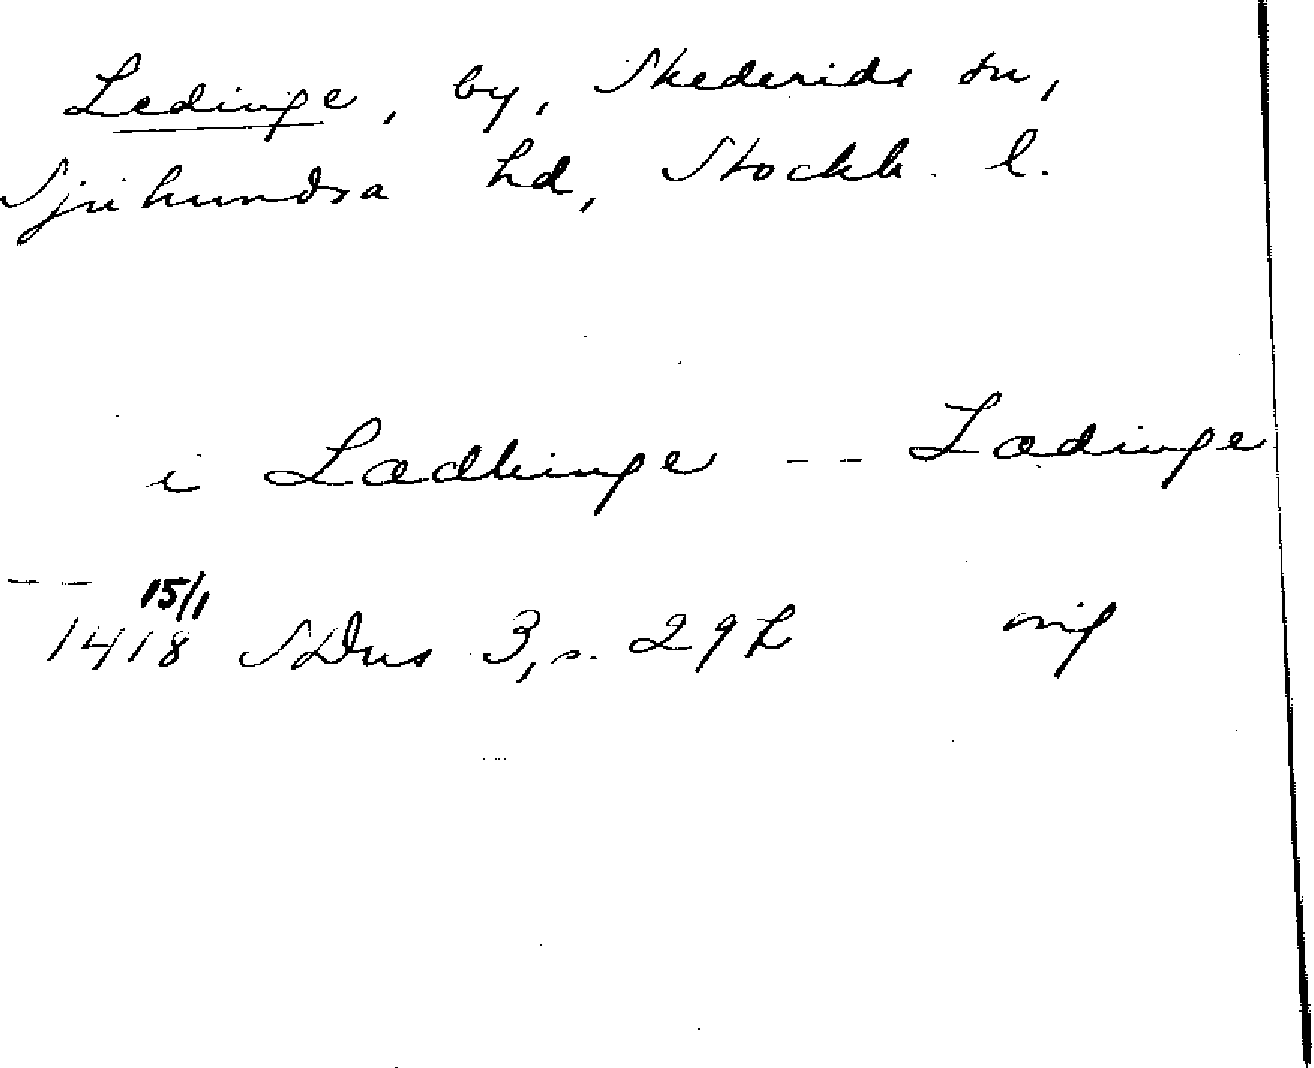 Ledinge, by, Skederids sn,
Sjuhundra hd, Stockh. l.
i Lædhinge -- Lædinge
-- 15/1
1418 SDns 3, s. 292 orig